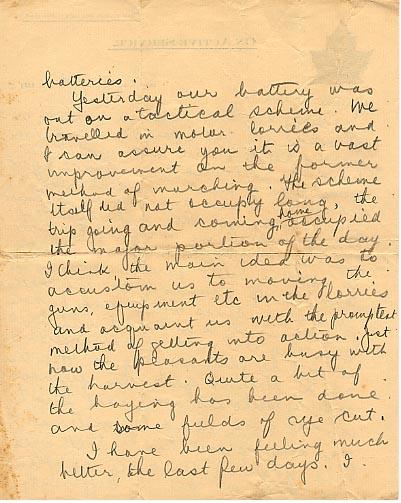 batteries.
Yesterday our battery was
out on a tactical scheme. We
travelled in motor lorries and
I can assure you it is a vast
improvement on the former
method of marching. The scheme
itself did not occupy long, the
trip going and coming home occupied
the major portion of the day.
I think the main idea was to
accustom us to moving the
guns, equipment etc in the lorries
and acquaint us with the promptest
method of getting into action. Just
now the peasants are busy with
the harvest. Quite a bit of
the haying has been done
and some fields of rye cut.
I have been feeling much
better, the last few days. I